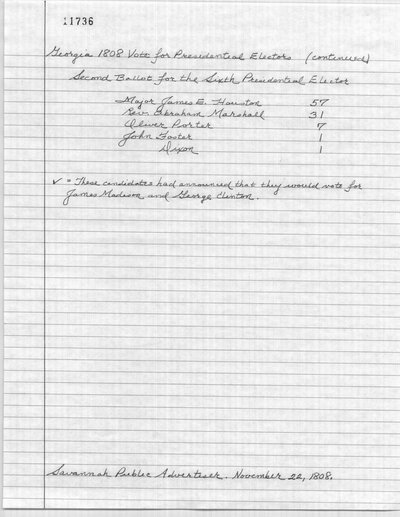 11736
Georgia 1808 Vote for Presidential Electors (continued)
Second Ballot for the Sixth Presidential Elector
Major James E. Houston 57
Rev. Abraham Marshall 31
Oliver Porter 7
John Foster 1
Dixon 1
✓ = These candidates had announced that they would vote for
James Madison and George Clinton.
Savannah Public Advertiser. November 22, 1808.